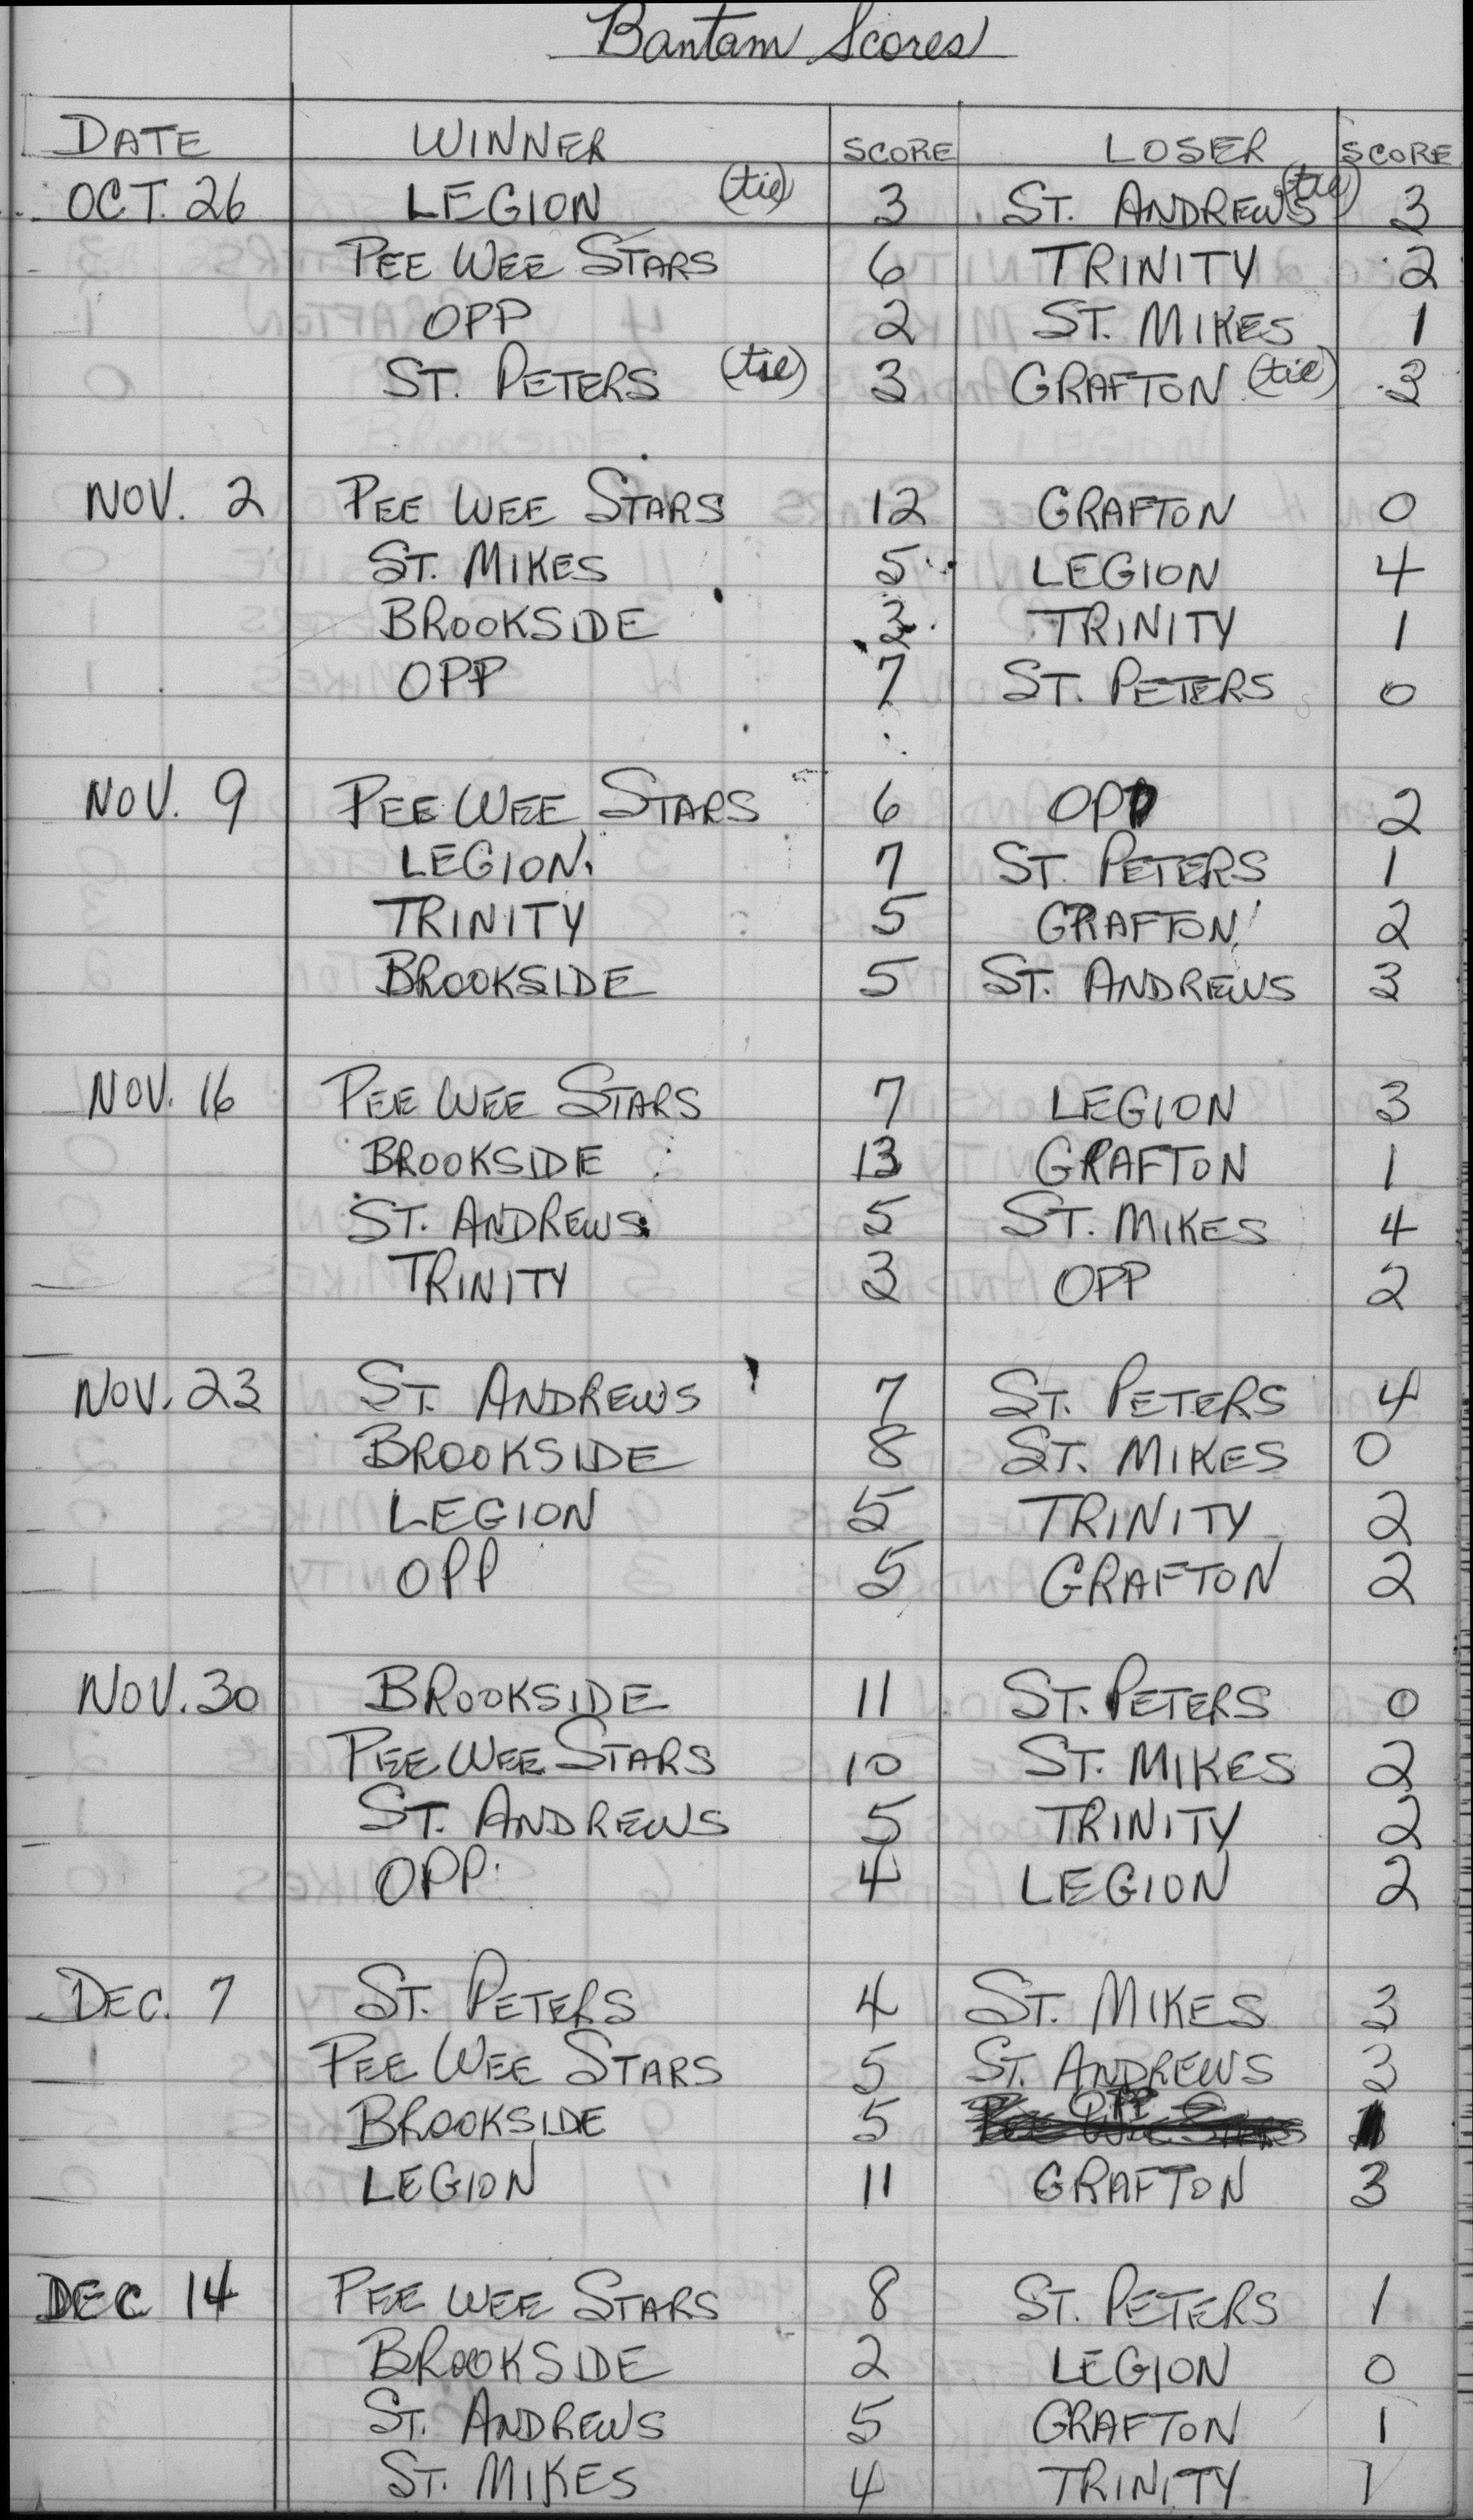 Bantam Scores
DATE WINNER SCORE LOSER SCORE
OCT. 26 LEGION (tie) 3 ST. ANDREWS (tie) 3
PEE WEE STARS 6 TRINITY 2
OPP 2 ST. MIKES 1
ST. PETERS (tie) 3 GRAFTON (tie) 3
NOV. 2 PEE WEE STARS 12 GRAFTON 0
ST. MIKES 5 LEGION 4
BROOKSIDE 3 TRINITY 1
OPP 7 ST. PETERS 0
NOV. 9 PEE WEE STARS 6 OPP 2
LEGION 7 ST. PETERS 1
TRINITY 5 GRAFTON 2
BROOKSIDE 5 ST. ANDREWS 3
NOV. 16 PEE WEE STARS 7 LEGION 3
BROOKSIDE 13 GRAFTON 1
ST. ANDREWS 5 ST. MIKES 4
TRINITY 3 OPP 2
NOV. 23 ST. ANDREWS 7 ST. PETERS 4
BROOKSIDE 8 ST. MIKES 0
LEGION 5 TRINITY 2
OPP 5 GRAFTON 2
NOV. 30 BROOKSIDE 11 ST. PETERS 0
PEE WEE STARS 10 ST. MIKES 2
ST. ANDREWS 5 TRINITY 2
OPP. 4 LEGION 2
DEC. 7 ST. PETERS 4 ST. MIKES 3
PEE WEE STARS 5 ST. ANDREWS 3
BROOKSIDE 5 OPP
LEGION 11 GRAFTON 3
DEC 14 PEE WEE STARS 8 ST. PETERS 1
BROOKSIDE 2 LEGION 0
ST. ANDREWS 5 GRAFTON 1
ST. MIKES 4 TRINITY 1